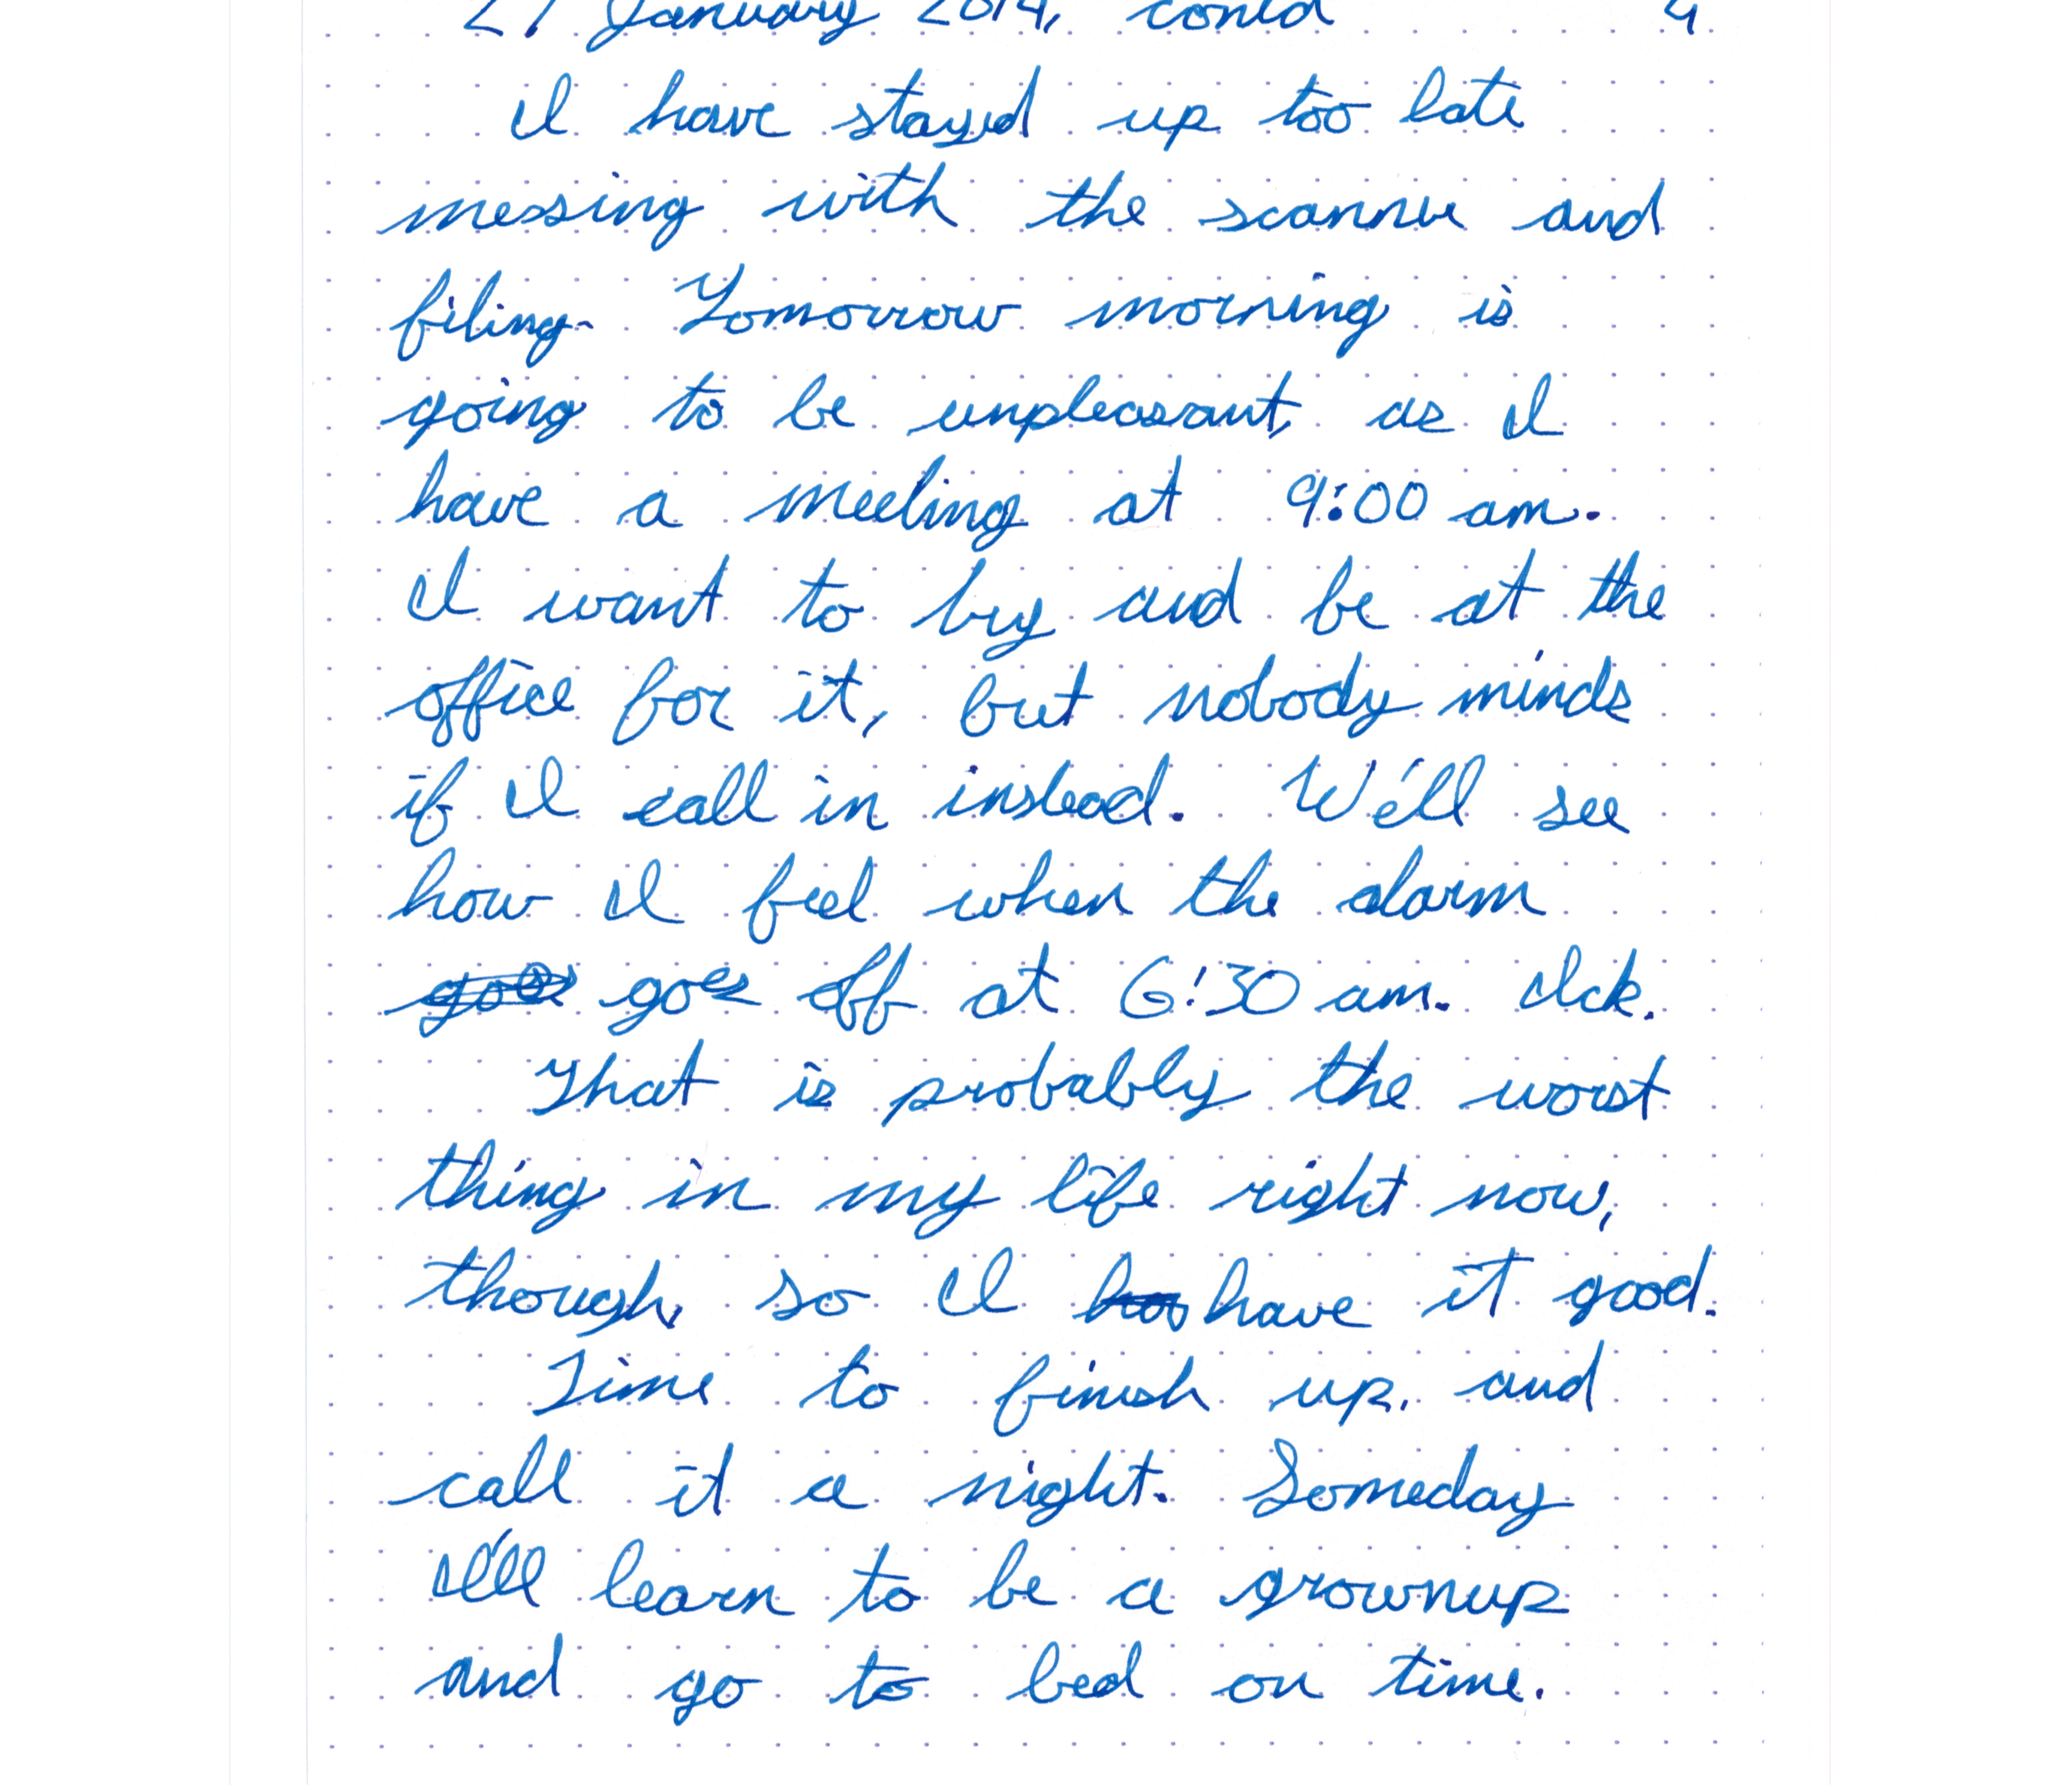 27 January 2014, contd 4
I have stayed up too late
messing with the scanner and
filing. Tomorrow morning is
going to be unpleasant, as I
have a meeting at 9:00 am.
I want to try and be at the
office for it, but nobody minds
if I call in instead. We'll see
how I feel when the alarm
goes off at 6:30 am. Ick.
That is probably the worst
thing in my life right now,
though, so I have it good.
Time to finish up, and
call it a night. Someday
I'll learn to be a grownup
and go to bed on time.